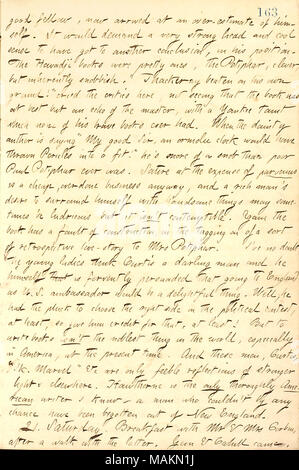 163
good fellow, now arrived at an over-estimate of him-
self. It would demand a very strong head and cool
sense to have got to another conclusion, in his position.
The Howadji books were pretty ones, the Potiphar, clever
but inherently snobbish. "Thackeray beaten on his own
ground!" cried the critics here not seeing that the book was
at best but an echo of the master, with a Yankee taint
such none of his books ever had. When the dainty
author is saying "My good Sir, an ormolu clock would have
thrown Pericles into a fit" he's more of a snob than poor
Paul Potiphar ever was. Satire at the expense of parvenus
is a cheap, overdone business anyway, and a rich man's
desire to surround himself with handsome things may some-
times be ludicrous but it isn't contemptible. Again the
book has a fault of construction in the tagging in of a sort
of retrospective love-story to Mrs Potiphar. I've no doubt
young ladies think Curtis a darling man and he
himself is fervently persuaded that going to England
as U.S. ambassador would be a delightful thing. Well, he
had the pluck to choose the right side in the political contest,
at least, so give him credit for that, at least! But to
write books isn't the noblest thing in the world, especially
in America, at the present time. And these men, Curtis,
"Ik. Marvel" &c are only feeble reflections of stronger
lights elsewhere. Hawthorne is the only thoroughly Ame-
rican writer I know — a man who couldn't by any
chance have been begotten out of New England.
21. Saturday. Breakfast with Mr & Mrs
after a walk with the latter, Gunn & Cahill came.
a alamy stock photo
MAKN1J